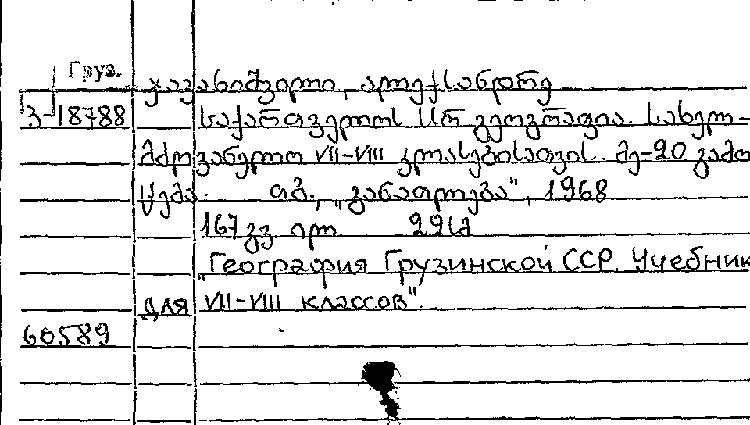 Груз.
ჯავახიშვილი, ალექსანდრე
3-18788
საქართველოს სსრ გეოგრაფია. სახელ-
მძღვანელო VII-VIII კლასებისათვის. მე-20 გამო
ცემა. თბ., "განათლება", 1968
167 გვ. ილ. 22სმ
"География Грузинской ССР. Учебник
для VII-VIII классов".
60589